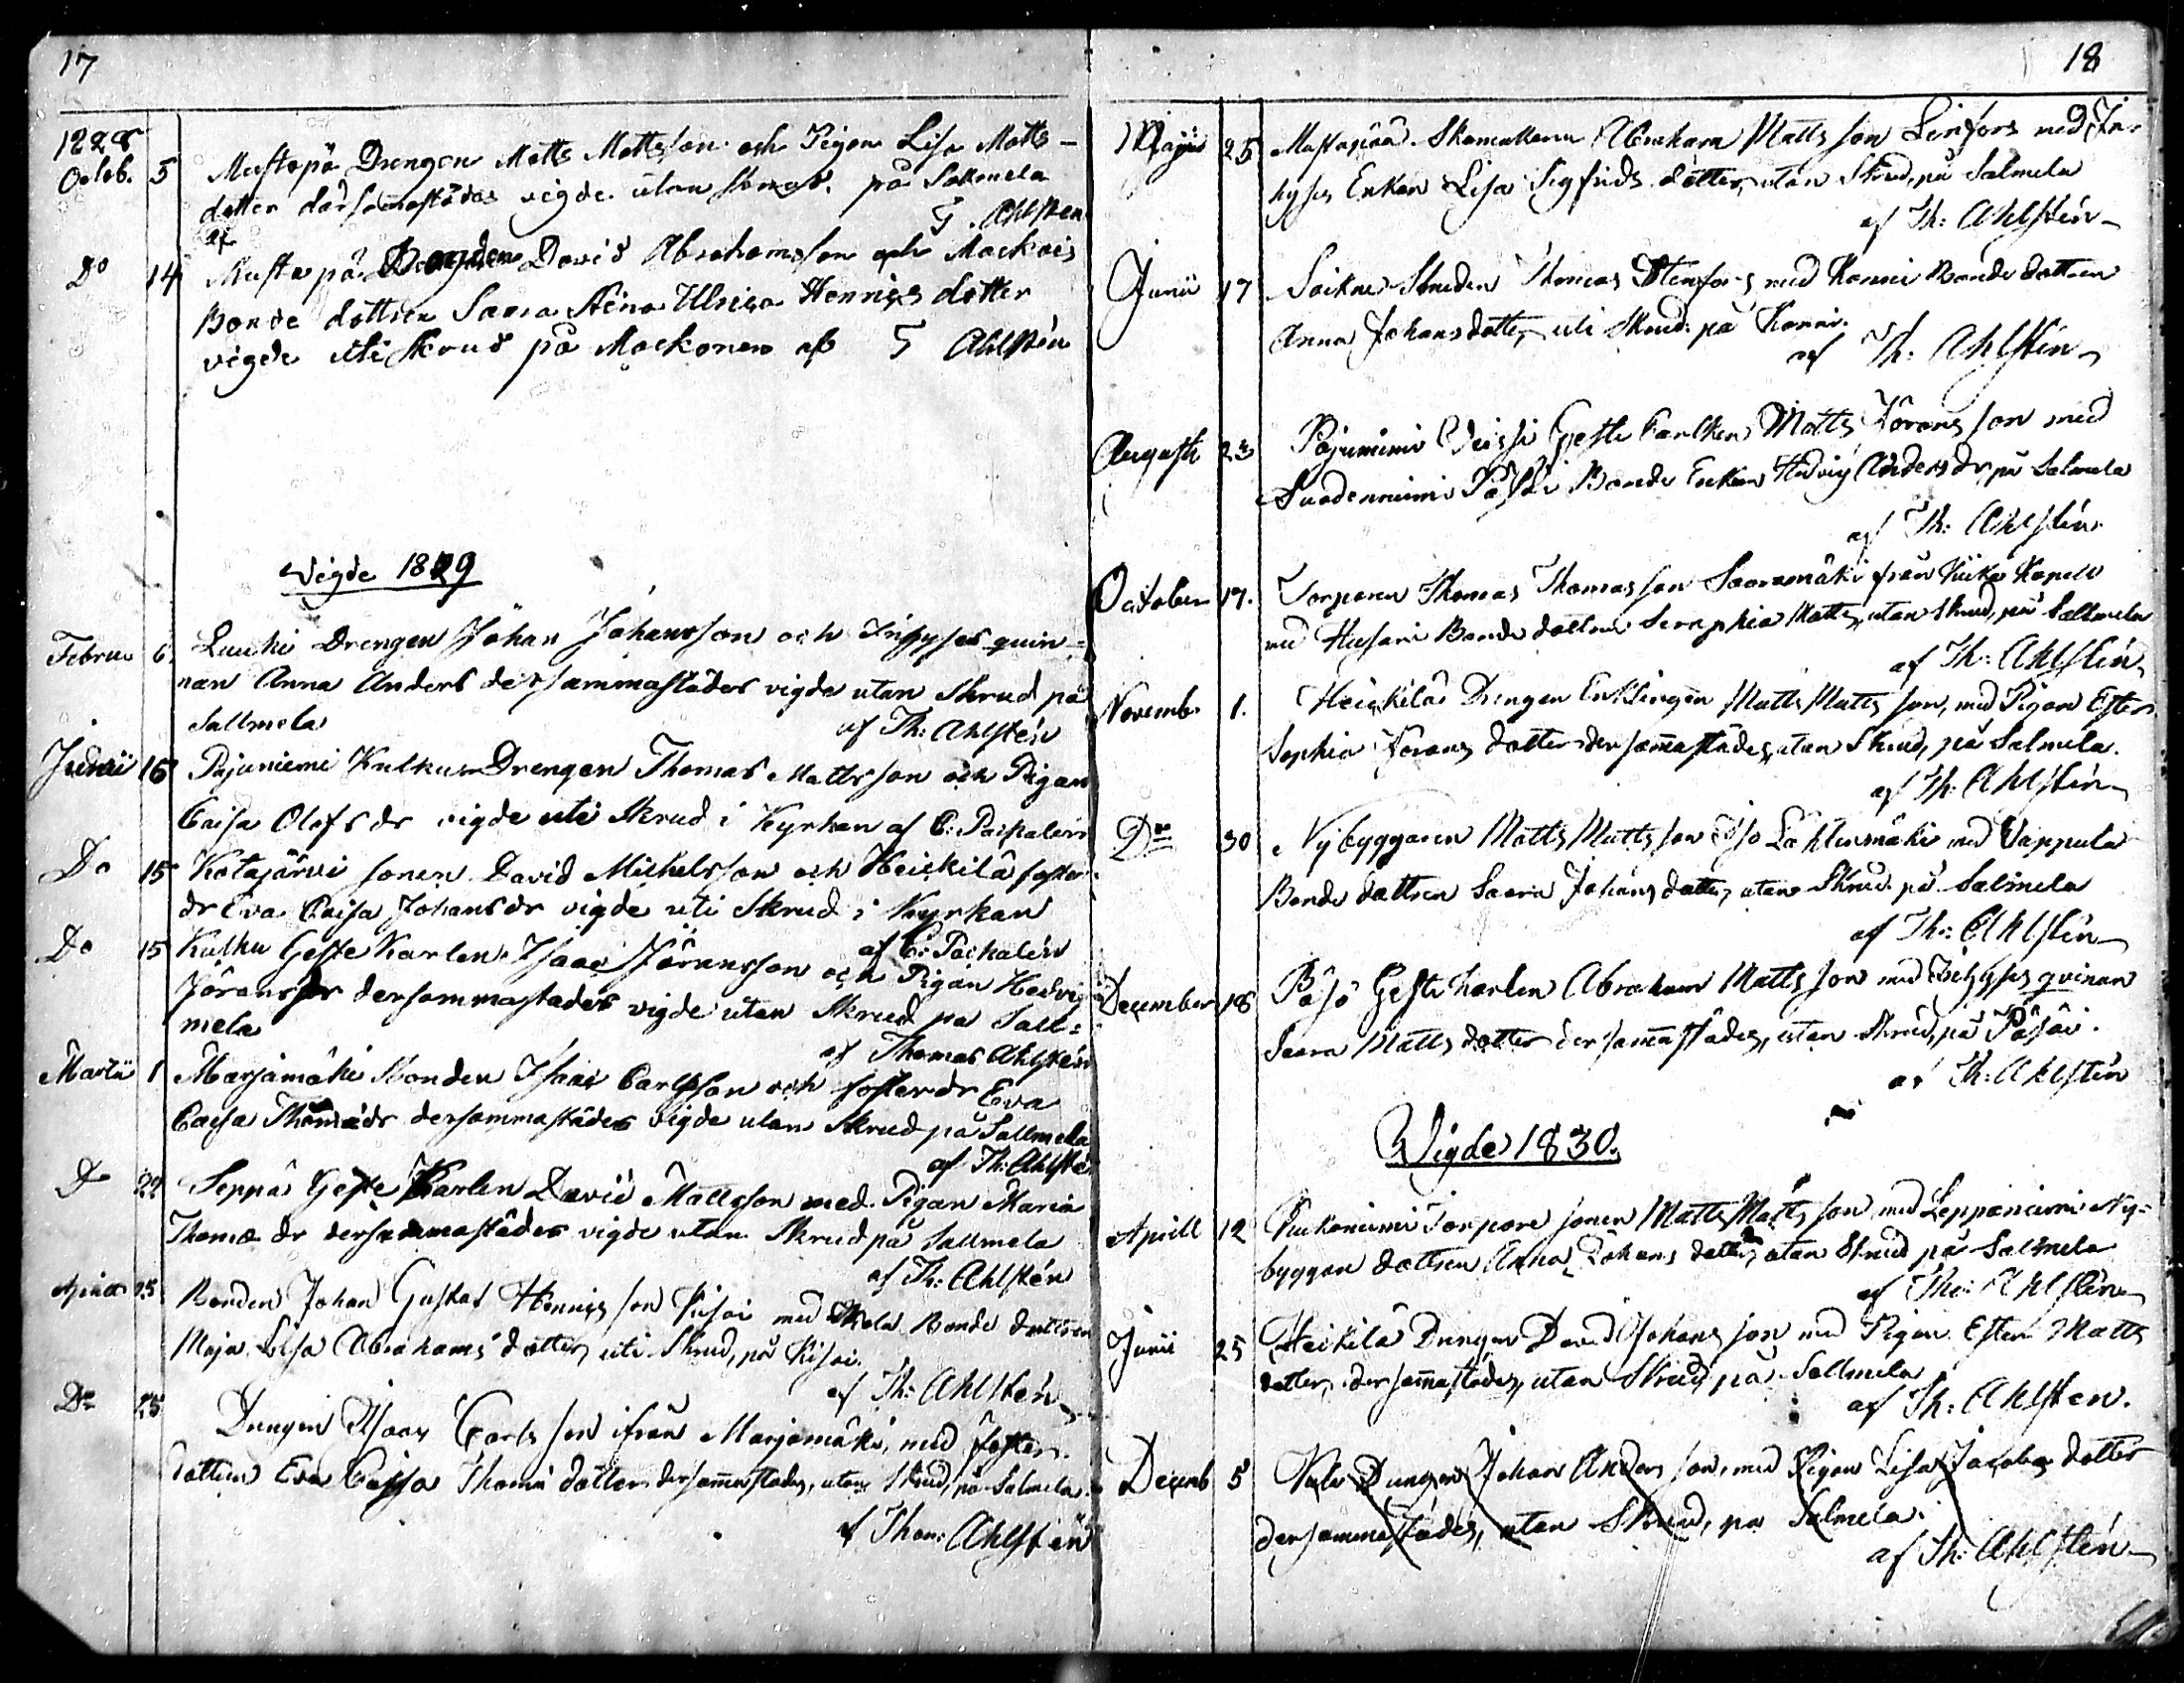 17
1828
Octob. 5 Mustapä Drengen Matts Mattsson och Pigan Lisa Matts-
dotter därsammastädes vigde utan skrud på Sallmela
af T. Ahlsten
Do 14 Mustapä Bonden David Abrahamsson och Mackois
Bonde dottren Saara Stina Ulrica Henrics dotter
vigde uti skrud på Mackonen af T Ahlstén
Vigde 1829
Februa 6. Luuki Drengen Johan Johansson och Inhyses quin=
nan Anna Anders dersammastädes vigde utan Skrud på
Sallmela af Th: Ahlstén
15 Pajuniemi Kulkun Drengen Thomas Mattsson och Pigan
Caisa Olofs dr vigde uti Skrud i Kyrkan af C: Paikalén
Do 15 Kotajärvi sonen David Michelsson och Heickilä foster
dr Eva Caisa Johans dr vigde uti Skrud i Kyrkan
af C: Paikalén
Do 15 Kulku Gäste Karlen Isaac Jöransson och Pigan Hedvig
Jörans dr dersammastädes vigde utan Skrud på Sall=
mela
af Thomas Ahlstén
Martii 1 Marjamäki Bonden Isaac Carlsson och foster dr Eva
Caisa Thomæ dr dersammastädes vigde utan Skrud på Sallmela
af Th: Ahlstén
Do 22 Seppä Geste Karlen David Mattsson med Pigan Maria
Thomæ dr dersammastädes vigde utan Skrud på Sallmela
af Th: Ahlstén
25 Bonden Johan Gustaf Henricsson Kisoi med Bonde dottren
Maja Lisa Abrahams dotter, uti Skrud, på Kisoi.
af Th: Ahlstén
Do 25 Drengen Isaac Carlsson ifrån Marjamäki, med foster
dottren Eva Caisa Thomæ dotter dersammastädes, utan Skrud, på Salmela.
af Thom: Ahlstén
18
Majus 25 Mustapää Skomakaren Abraham Mattsson Linfors med In-
hyses Enkan Lisa Sigfrids dotter, utan Skrud, på Salmela
af Th: Ahlstén
Junii 17 Thomas Stenfors med Konni Bonde dottren
Anna Johans dotter, uti Skrud på Konni.
af Th: Ahlstén
Augusti 23 Pajuniemi Geste Karlen Matts Jöransson med
Bonde Enkan Hedvig Anders dr, på Salmela
af Th: Ahlstén
October 17. Torparen Thomas Thomasson Saaramäki från Kapell
med Husari Bonde dottren Seraphia Matts, utan Skrud, på Sallmela
af Th: Ahlstén
Novemb. 1. Heickilä Drengen Enklingen Matts Mattsson, med Pigan Ester
Sophia Jörans dotter dersammastädes, utan Skrud, på Salmela.
af Th: Ahlstén
Do 30 Nybyggaren Matts Mattsson Iso Lähtenmäki med Vappula
Bonde dottren Saara Johans dotter, utan Skrud på Salmela
af Th: Ahlstén
December 18 Päsö Geste karlen Abraham Mattsson med Inhyses qvinan
Saara Matts dotter dersammastädes, utan Skrud, på Päsöi.
af Th: Ahlstén
Vigde 1830.
Aprill 12 Kuckoniemi Torpare sonen Matts Mattsson, med Leppäniemi Ny=
byggare dottren Anna Johans dotter, utan Skrud på Salmela
af Th: Ahlstén
Junii 25 Heikilä Drengen David Johansson med Pigan Ester Matts
dotter, dersammastädes, utan Skrud, på Sallmela
af Th: Ahlsten.
Decemb 5 Drengen Johan Andersson, med Pigan Lisa Jacobs dotter
dersammastädes, utan Skrud, på Salmela.
af Th: Ahlstén